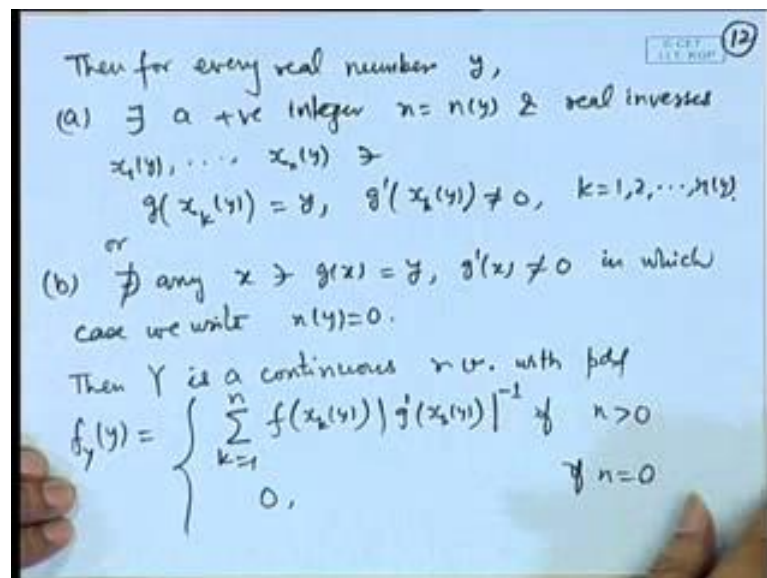 12
Then for every real number y,
(a) ∃ a +ve integer n = n(y) & real inverses
x₁(y), ..., xₙ(y) ∋
g(xₖ(y)) = y, g'(xₖ(y)) ≠ 0, k=1,2,...,n(y).
or
(b) ∄ any x ∋ g(x) = y, g'(x) ≠ 0 in which
case we write n(y)=0.
Then Y is a continuous r.v. with pdf
f_Y(y) = { ∑ₖ₌₁ⁿ f(xₖ(y)) |g'(xₖ(y))|⁻¹ if n>0
0, if n=0